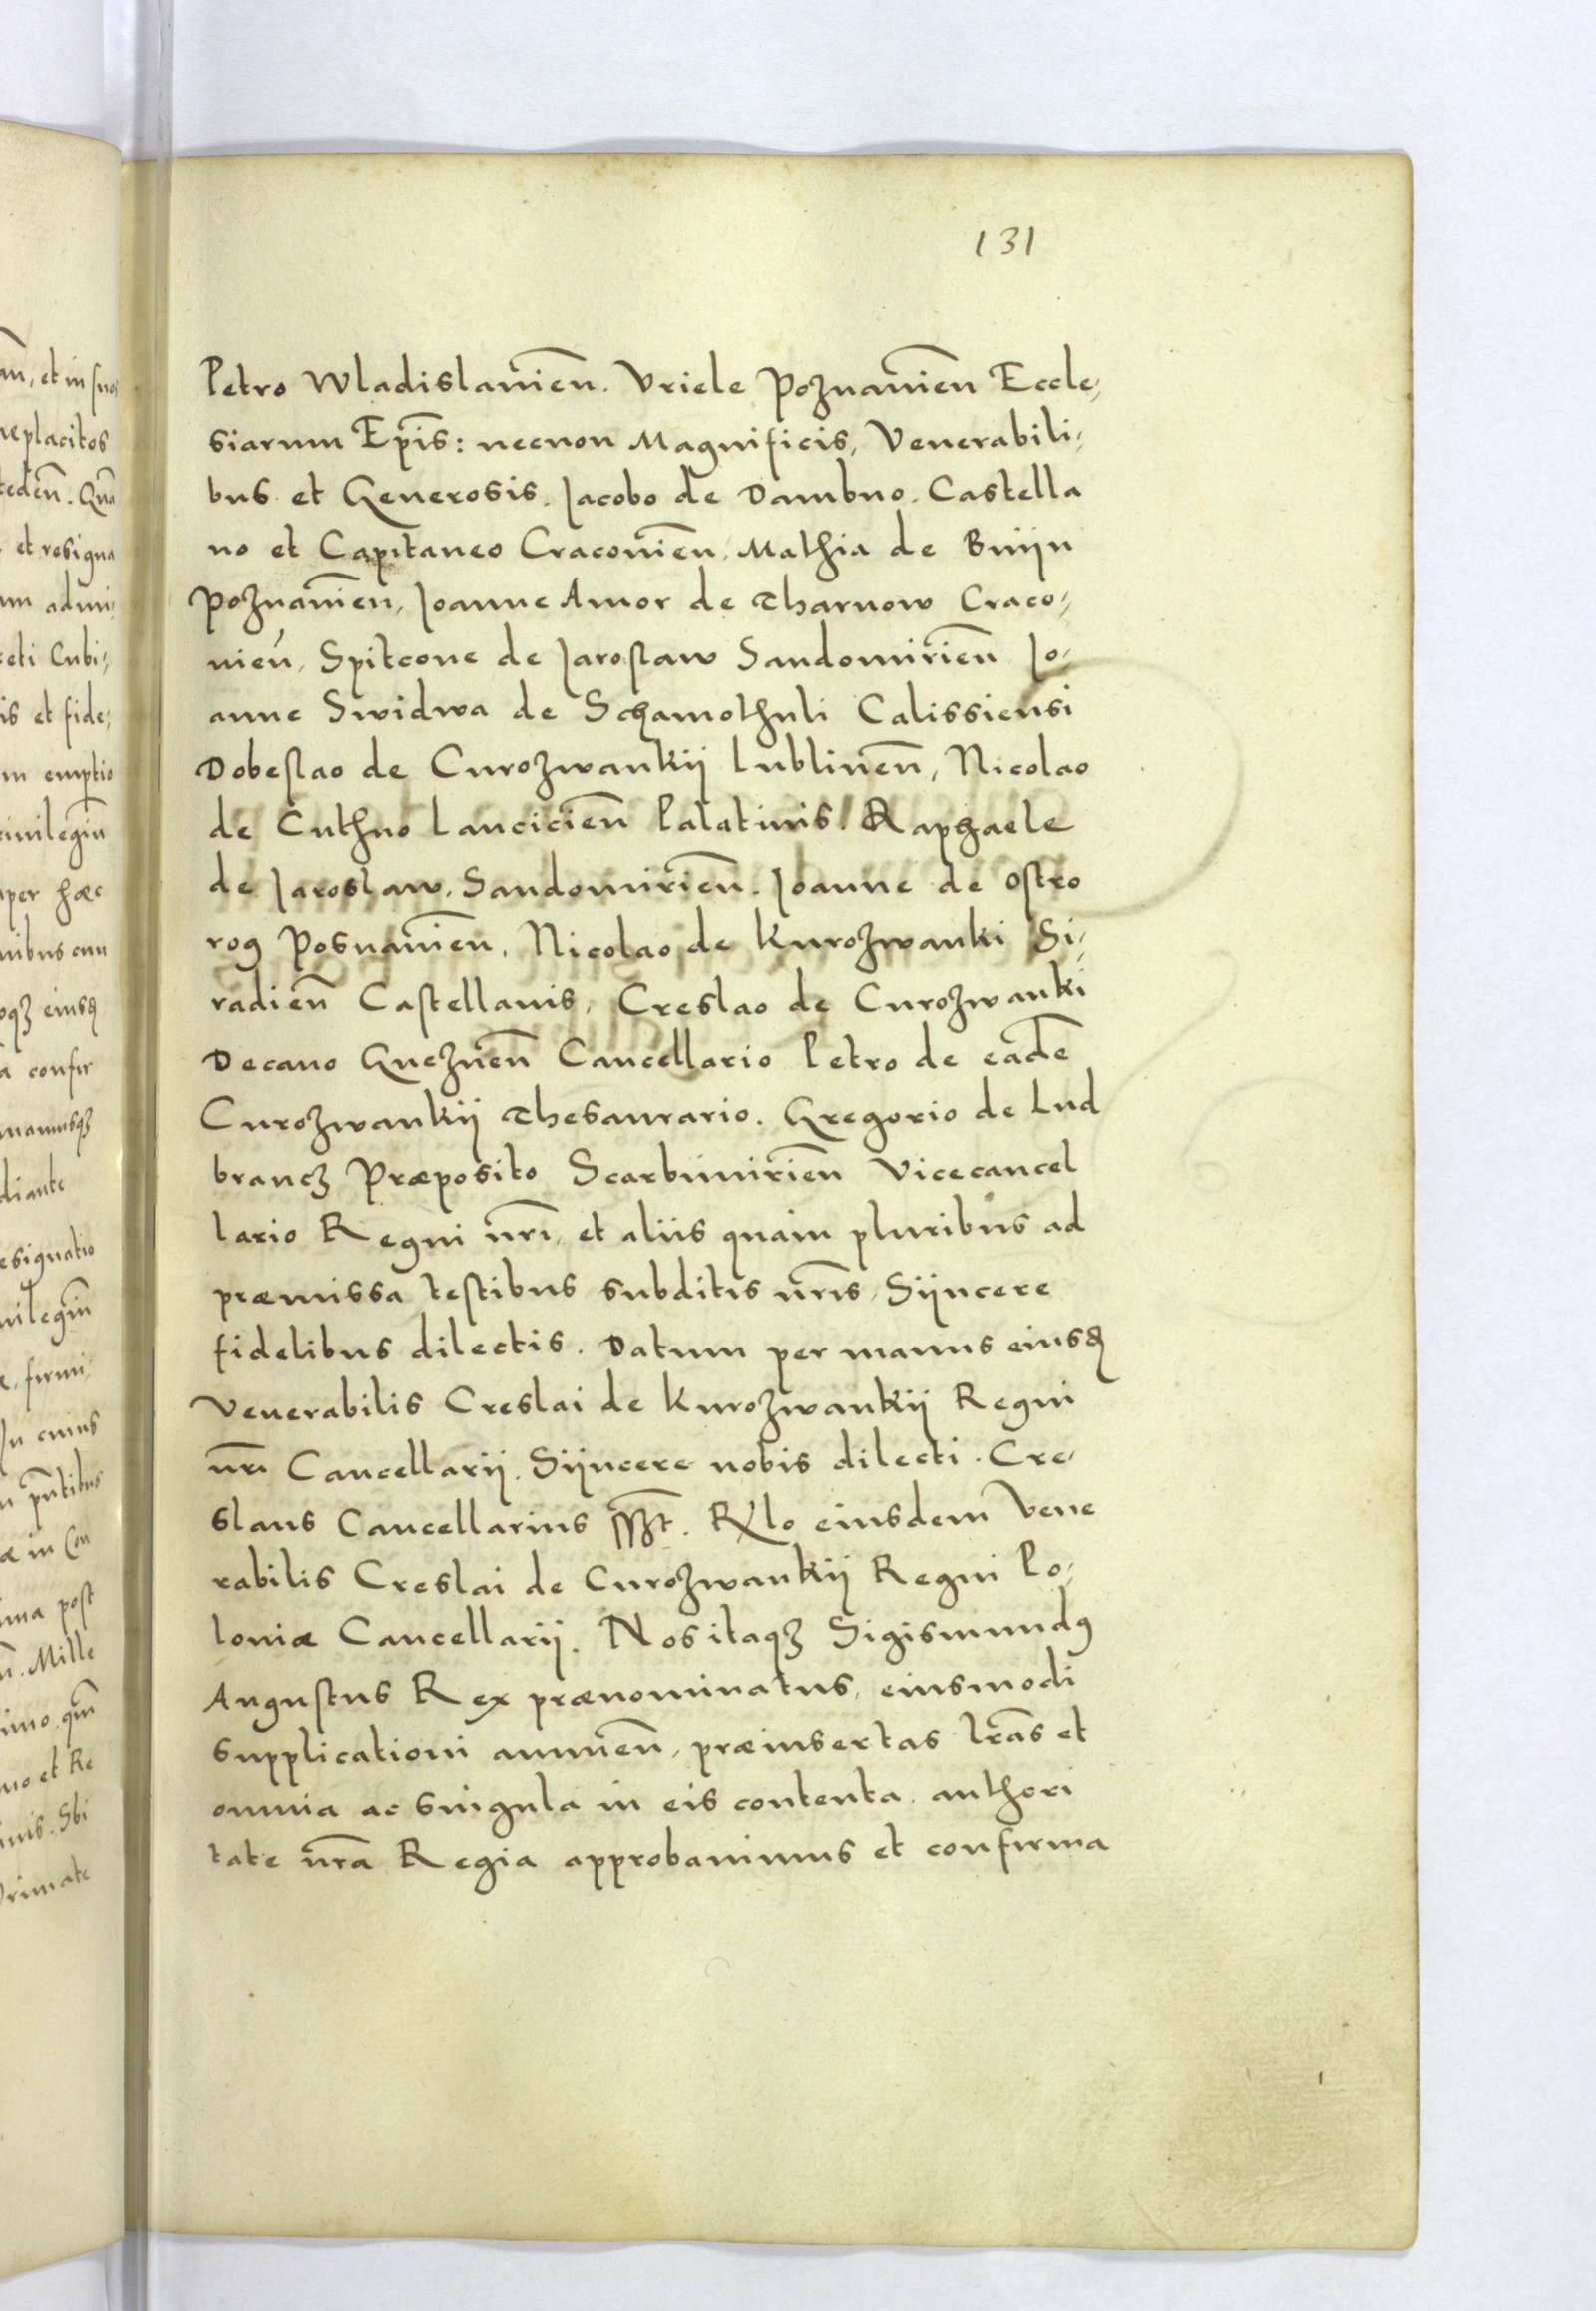 131
Petro Wladislauien̄. Vriele Poznanien̄ Eccle,
siarum Ep̄is: necnon Magnificis, Venerabili,
bus et Generosis. Iacobo de Dambno. Castella
no et Capitaneo Cracouien̄, Mathia de Bniyn
Poznanien̄, Ioanne Amor de Tharnow Craco,
uien̄, Spitcone de Iaroslaw Sandomirien̄ Io,
anne Swidwa de Schamothuli Calissiensi
Dobeslao de Curozwankij Lublinen̄, Nicolao
de Cuthno Lancicien̄ Palatinis. Raphaele
de Iaroslaw. Sandomirien̄. Ioanne de Ostro
rog Posnanien̄. Nicolao de Kurozwanki Si,
radien̄ Castellanis, Creslao de Curozwanki
Decano Gneznen̄ Cancellario Petro de eadē
Curozwankij Thesaurario. Gregorio de Lud
brancz Præposito Scarbimirien̄ Vicecancel
lario Regni nr̄i, et aliis quam pluribus ad
præmissa testibus subditis nr̄is, Sijncere
fidelibus dilectis. Datum per manus eiusdꝫ
Venerabilis Creslai de Kurozwankij Regni
nr̄i Cancellarij. Sijncere nobis dilecti. Cre,
slaus Cancellarius sszt. Rl̄o eiusdem Vene
rabilis Creslai de Curozwankij Regni Po,
loniæ Cancellarij. Nos itaqꝫ Sigismundꝰ
Augustus Rex prænominatus, eiusmodi
supplicationi annuen̄, præinsertas lr̄as et
omnia ac singula in eis contenta. authori
tate nr̄a Regia approbauimus et confirma
an̄, et in suos
neplacitos
cedēn. Quā
et resigna
um admi,
reti Cubi,
is et fide,
m emptio
riuilegiū
uper hæc
nibus cum
oqꝫ eiusdꝫ
a confir
manusqꝫ
diante
esignatio
uilegiū
firmi,
In cuius
pn̄tibus
æ in Con
ima post
n̄. Mille
imo. qm̄
mo et Re
imis. Sbi
Primate